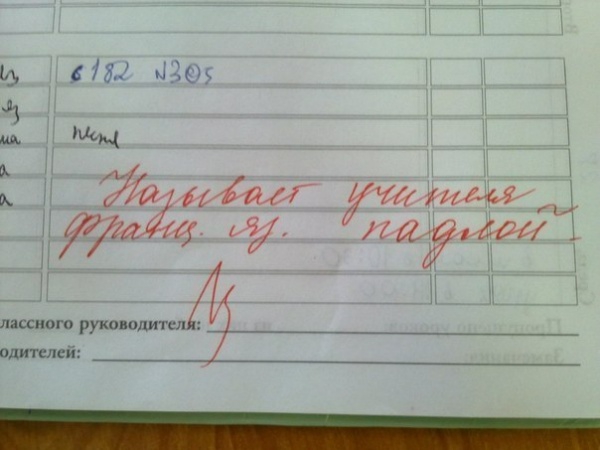 с 182 №3 @5
яз
Называет учителя
франц. яз. падлой.
лассного руководителя:
одителей: